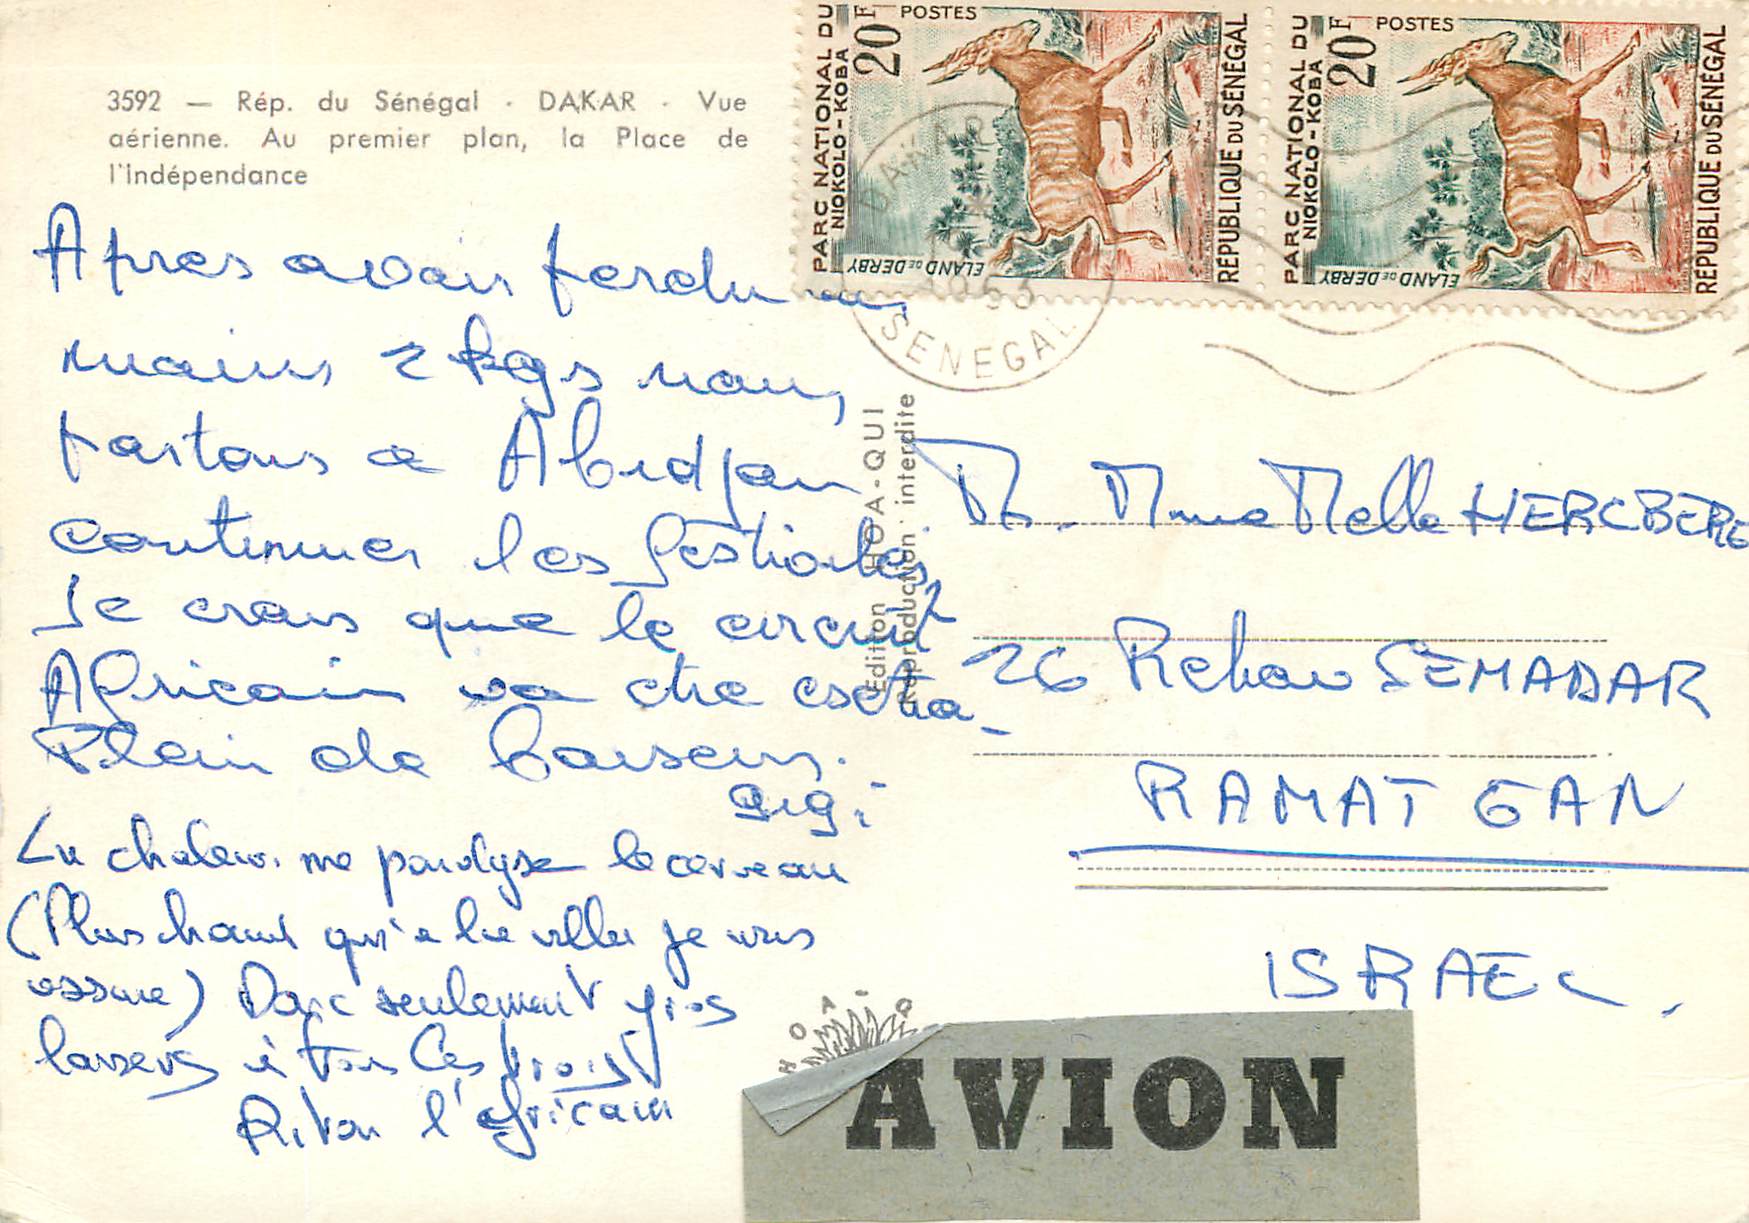 3592 — Rép. du Sénégal - DAKAR - Vue
aérienne. Au premier plan, la Place de
l'indépendance
POSTES
20F
PARC NATIONAL DU
NIOKOLO-KOBA
ELAND DE DERBY
RÉPUBLIQUE DU SÉNÉGAL
POSTES
20F
PARC NATIONAL DU
NIOKOLO-KOBA
ELAND DE DERBY
RÉPUBLIQUE DU SÉNÉGAL
DAKAR
SENEGAL
Apres avoir perdu au
moins 2 kgs nous
partons a Abidjan
continuer les festivités
Je crois que le circuit
Africain va etre extra-
Plein de baisers.
Gigi
La chaleur me paralyse le cerveau
(Plus chaud qu'a la ville je vous
assure) Donc seulement gros
baisers à tous les trois
Riton l'africain
Edition HOA-QUI
Reproduction interdite
M. Mme Melle HERCBERG
26 Rehov SEMADAR
RAMAT GAN
ISRAEL.
HOA-Q
AVION